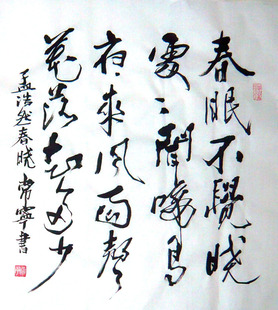 春眠不覺曉
處〻聞啼鳥
夜來風雨聲
花落知多少
孟浩然春曉 常寧書